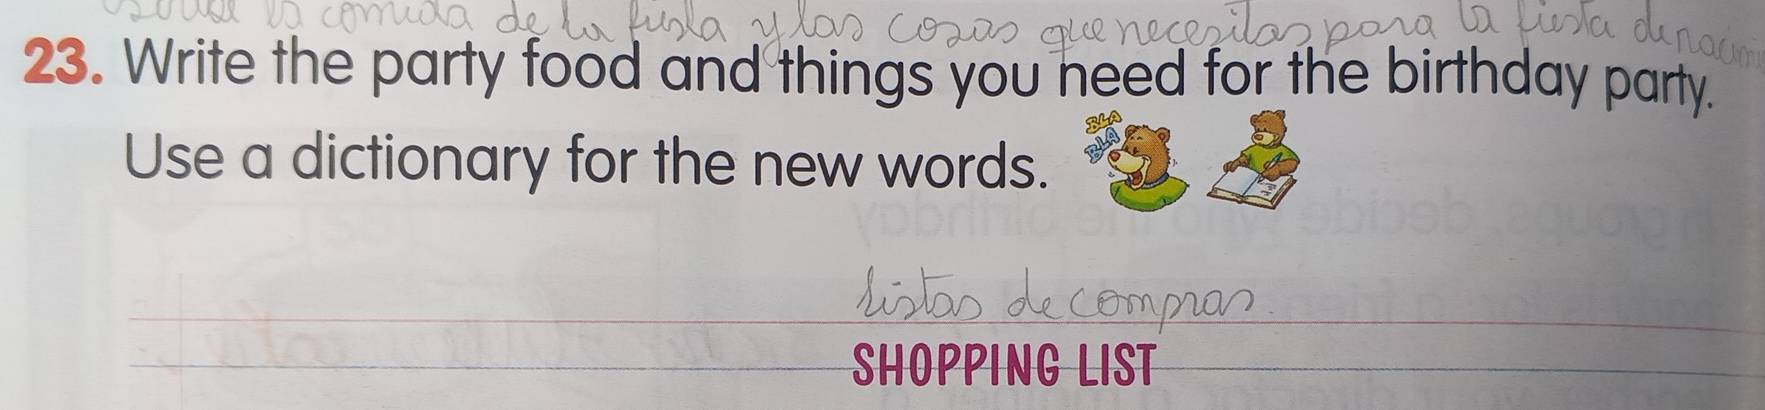 la comida de la fiesta y las cosas que necesitas para la fiesta de nacimi
23. Write the party food and things you need for the birthday party.
BLA
BLA
Use a dictionary for the new words.
listas de compras.
SHOPPING LIST